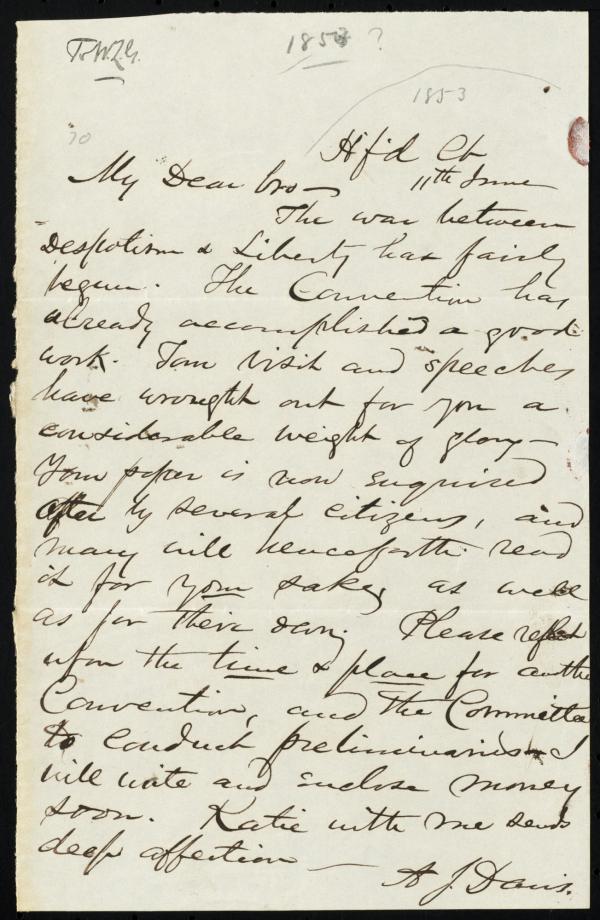 To W.L.G.
1853 ?
1853
70
Hf'd Ct
My Dear bro— 11th June
The war between
Despotism & Liberty has fairly
begun. The Convention has
already accomplished a good
work. Your visit and speeches
have wrought out for you a
considerable weight of glory—
Your paper is now enquired
after by several citizens, and
many will henceforth read
it for your sake, as well
as for their own. Please reflect
upon the time & place for another
Convention, and the Committee
to conduct preliminaries— I
will write and enclose money
soon. Katie with me sends
deep affection —
A J Davis.